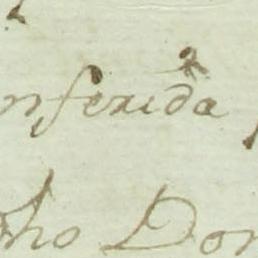 nferida
ho Don